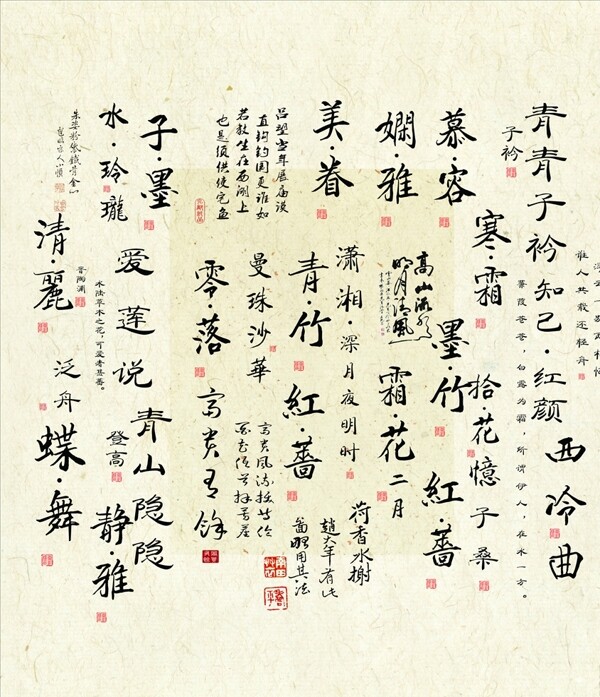 青青子衿知己·红颜
子衿
西冷曲
誰人共載还轻舟
蒹葭苍苍，白露为霜，所谓伊人，在水一方。
慕·容
寒·霜
拾·花憶
子桑
嫻·雅
高山流水
明月清風
墨·竹
紅·薔
霜·花
二月
美·眷
瀟湘·深月夜明时
荷香水榭
趙大年有此
青·竹
紅·薔
曼珠沙華
吕望当年展庙谟
直钩钓国更谁如
若教生在西湖上
也是须供使宅鱼
零·落
子·墨
水·玲瓏
爱莲说
晋陶渊
水陆草木之花，可爱者甚蕃。
青山隐隐
清·麗
泛舟
登高
蝶·舞
静·雅